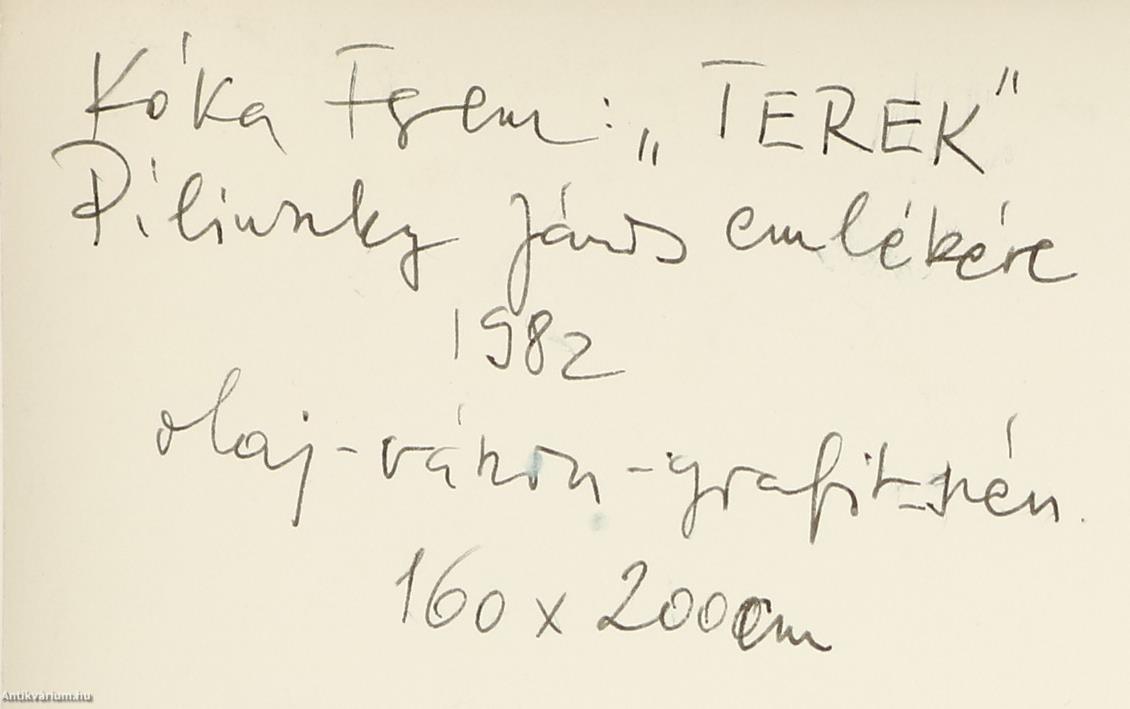 Kóka Ferenc: „TEREK"
Pilinszky János emlékére
1982
olaj-vászon-grafit-szén.
160 x 200cm
Antikvarium.hu